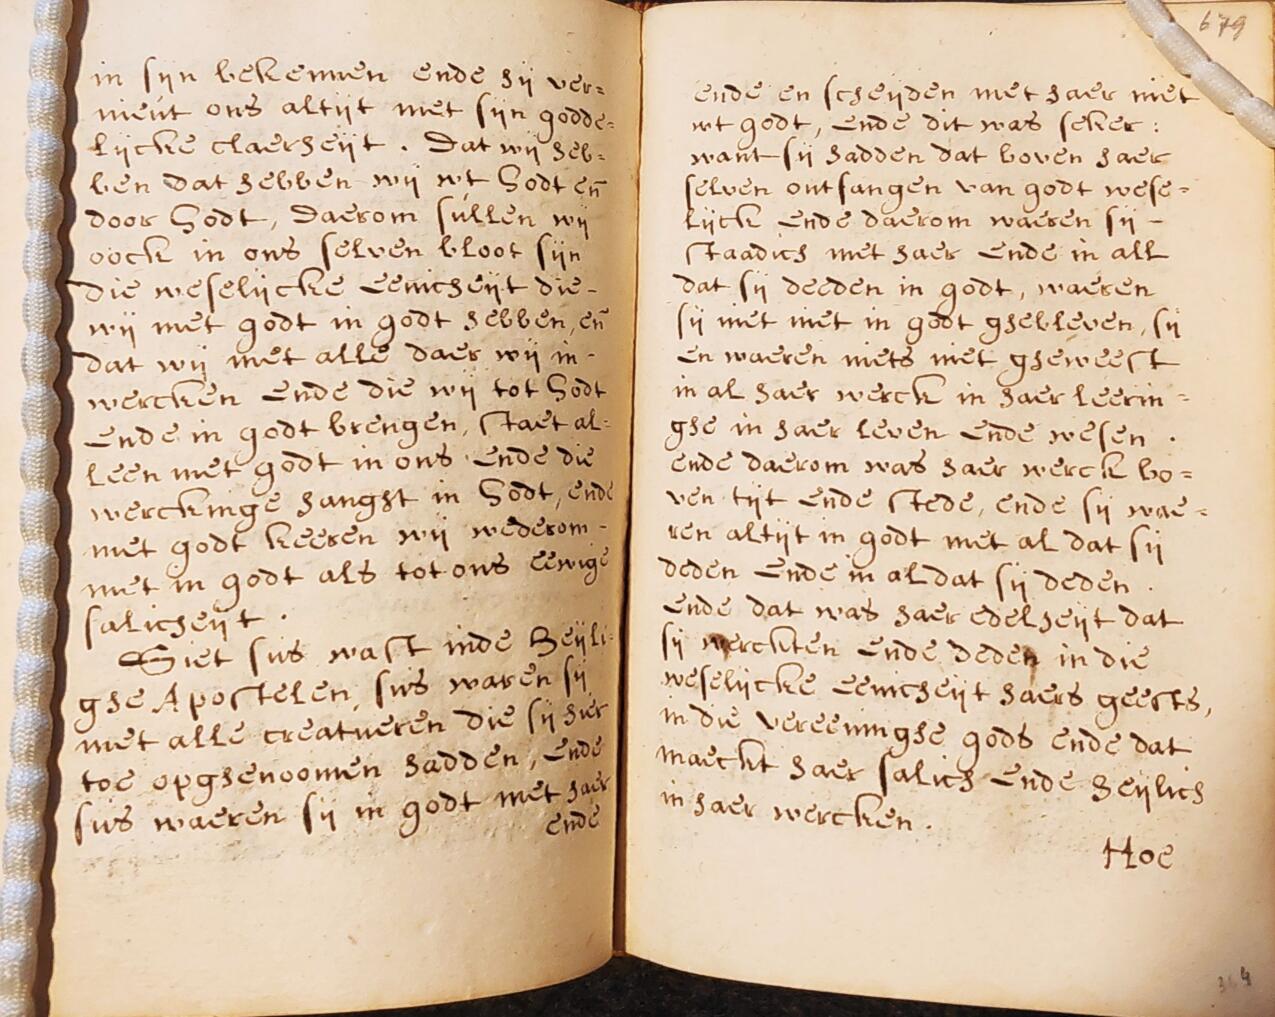 in sijn bekennen ende hij ver=
nieút ons altijt met sijn godde=
lijcke claerheijt . Dat wij heb=
ben dat hebben wij wt Godt eñ
door Godt, Daerom súllen wij
oock in ons selven bloot sijn
die weselijcke Eenicheijt die-
wij met godt in godt hebben, eñ
dat wij met alle daer wij in-
wercken Ende die wij tot Godt
Ende in godt brengen, staet al=
leen met godt in ons Ende die
werckinge hanght in Godt, ende
met godt keeren wij wederom-
met in godt als tot ons eewige
salicheijt .
Siet sus wast inde Heijli=
ghe Apostelen, sus waren sij
met alle creatueren die sij hier
toe opghenoomen hadden, Ende
sus waeren sij in godt met haer
ende
679
ende en scheijden met haer niet
wt godt, Ende dit was seker :
want sij hadden dat boven haer
selven ontfangen van godt wese=
lijck Ende daerom waeren sij -
staadich met haer Ende in all
dat sij deeden in godt, waeren
sij niet met in godt ghebleven, sij
en waeren niets niet gheweest
in al haer werck in haer leerin=
ghe in haer leven Ende wesen .
Ende daerom was haer werck bo=
ven tijt Ende stede, ende sij wae=
ren altijt in godt met al dat sij
deden Ende in al dat sij deden .
Ende dat was haer edelheijt dat
sij werckten Ende deden in die
weselijcke Eenicheijt haers geests,
in die vereeninghe gods Ende dat
maeckt haer salich Ende heijlich
in haer wercken .
Hoe
364